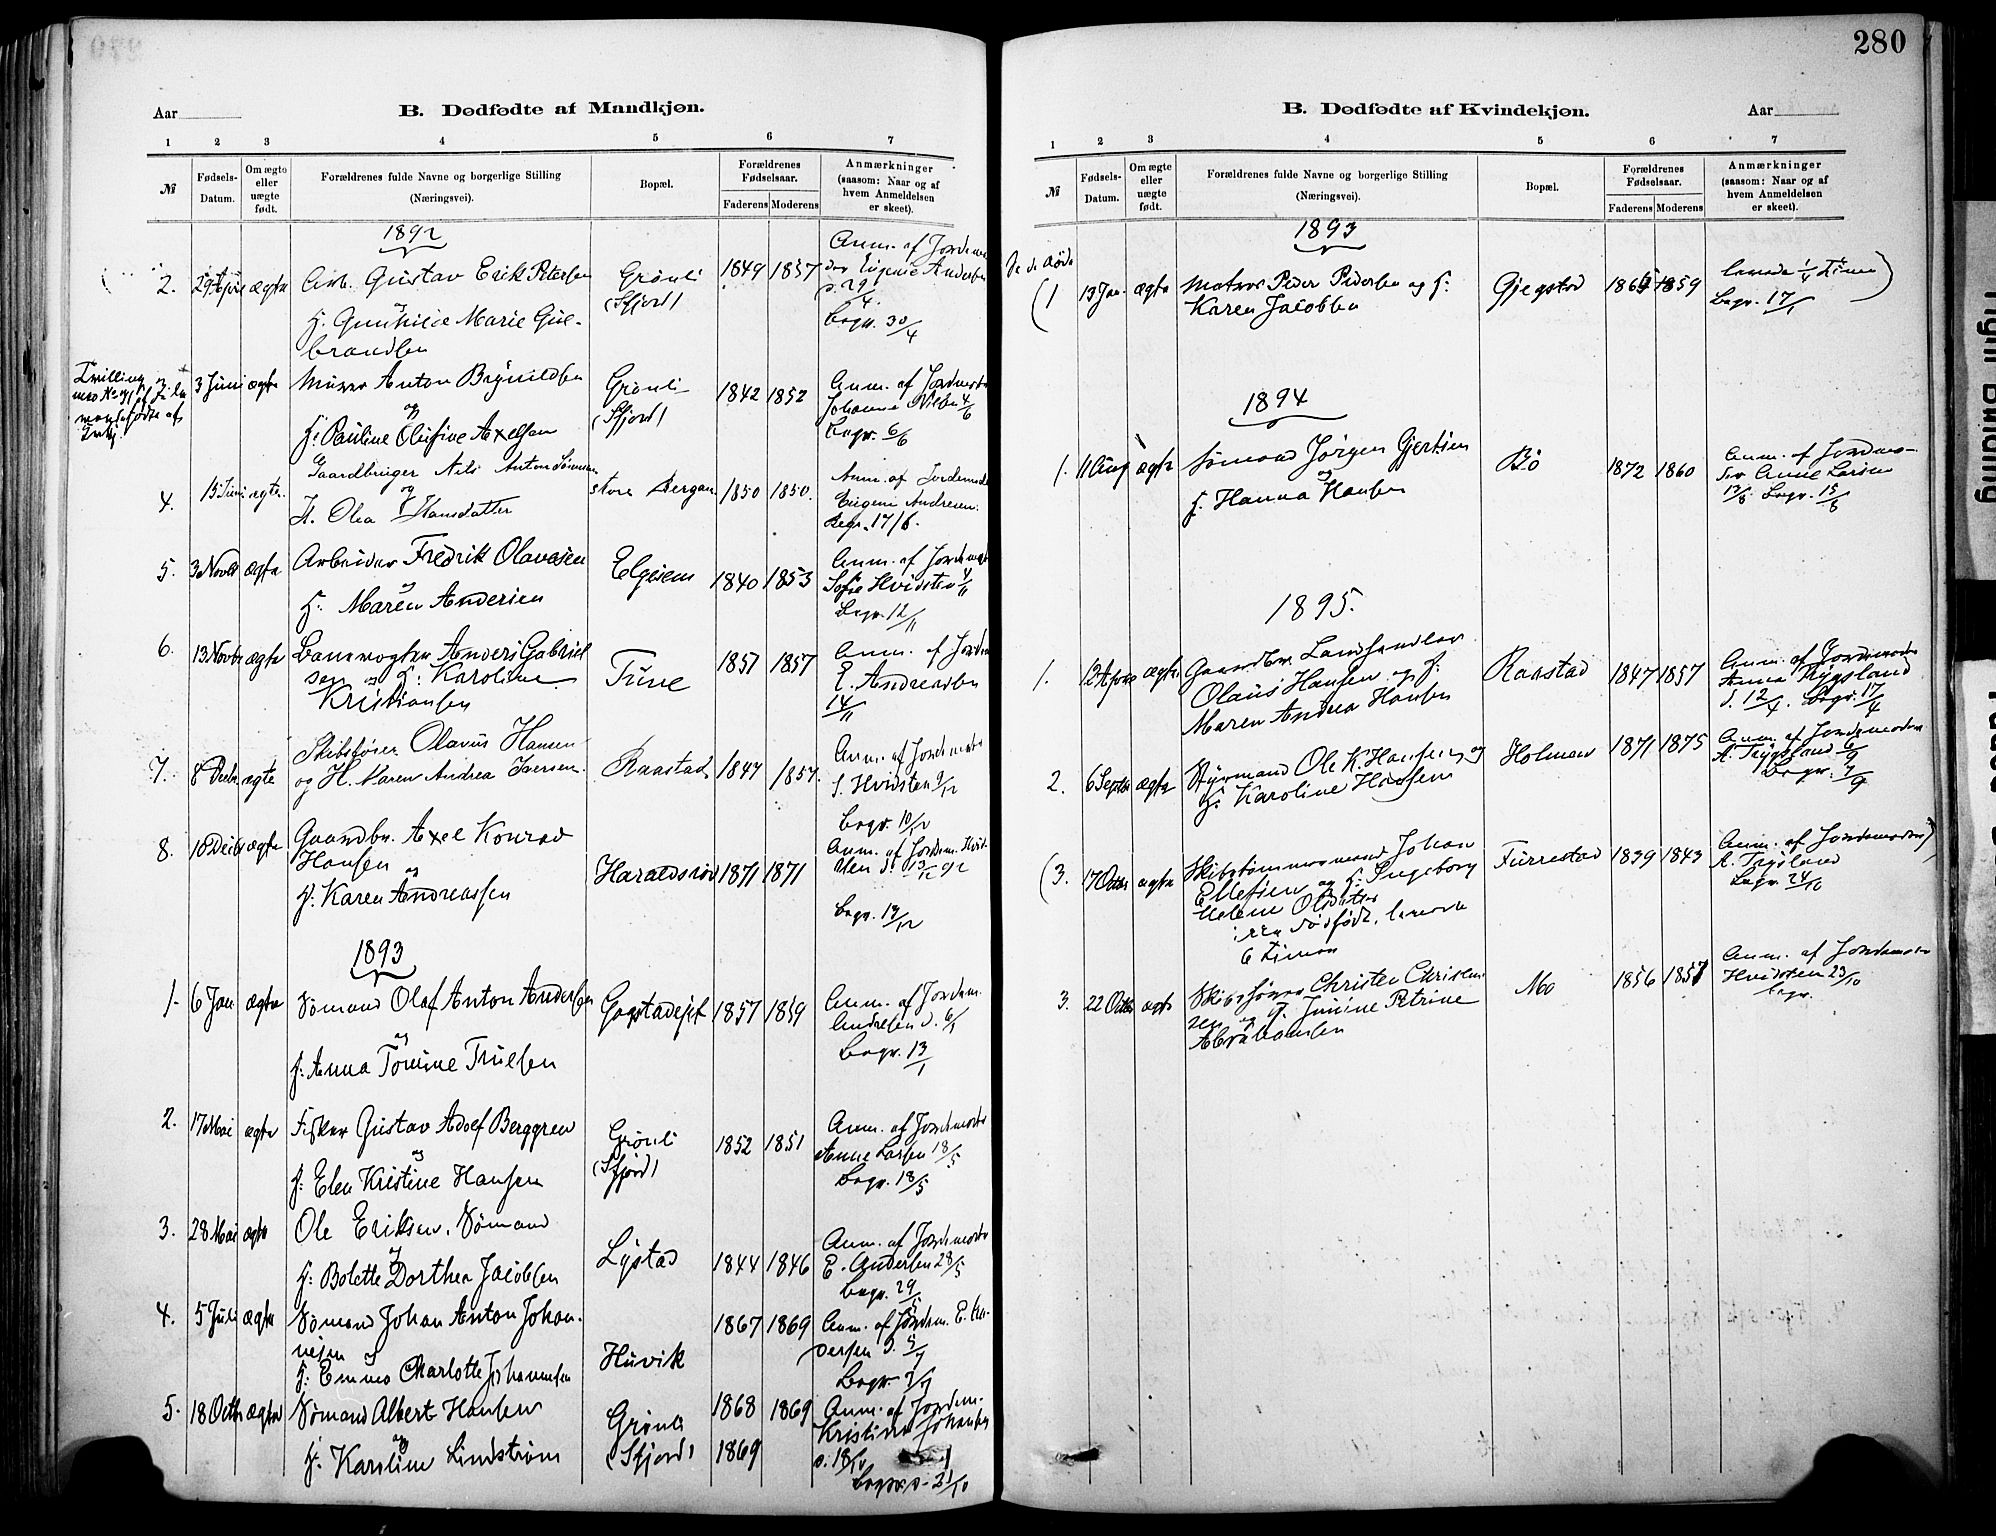 280
Aar
B. Dødfødte af Mandkjøn.
1 2 3 4 5 6 7
№
Fødsels-
Datum.
Om ægte
eller
uægte
født.
Forældrenes fulde Navne og borgerlige Stilling
(Næringsvei).
Bopæl.
Forældrenes
Fødselsaar.
Faderens Moderens
Anmærkninger
(saasom: Naar og af
hvem Anmeldelsen
er skeet).
1892
2. 29 April ægte Arb. Gustav Erik Petersen Grønli 1849 1857 Anm. af Jordemo-
og (Sfjord)
H. Gunhilde Marie Gul- Begr. 30/4
brandsen
3 Juni ægte Murer Anton Brynildsen Grønli 1842 1852 Anm. af Jordemoder
og (Sfjord) Johanne Nilsen 4/6
H: Pauline Olufine Axelsen Begr. 6/6
4. 15 Juni ægte Gaardbruger Nils Anton Sørensen store Bergan 1850 1850. Anm. af Jordemoder
og Eugenie Andresen.
H. Olea Hansdatter Begr. 17/6.
5. 3 Novbr ægte Arbeider Fredrik Olavesen Elgesem 1840 1853 Anm. af Jordemoder
og Sofie Hvidsten 4/11
H: Maren Andersen Begr. 12/11
6. 13 Novbr ægte Banevogter Anders Gabriel Tune 1857 1857 Anm. af Jordem
sen og H: Karoline E. Andreassen
Kristiansen 14/11
7. 8 Decbr ægte Skibsfører Olavus Hansen Raastad 1847 1857. Anm. af Jordemoder
og H. Maren Andrea Iversen. S. Hvidsten 9/12
Begr. 10/12
8. 10 Decbr ægte Gaardbr. Axel Konrad Haraldsrød 1871 1871 Anm. af Jordem. Hvid-
Hansen og sten d. 13/12 92
H: Karen Andreassen Begr. 13/12
1893
1. 6 Jan ægte Sømand Olaf Anton Andersen Gogstadejet 1857 1859 Anm. af Jordem.
og Andresen d. 6/1
H: Anna Tomine Trulsen Begr. 13/1
2. 17 Mai ægte Fisker Gustav Adolf Berggren Grønli 1852 1851 Anm. af Jordemoder
og (Sfjord) Anne Larsen 18/5
H: Elen Kristine Hansen Begr. 18/5
3. 28 Mai ægte Ole Eriksen, Sømand Lystad 1844 1846 Anm. af Jordemoder
og E. Andersen 28/5
H: Bolette Dorthea Jacobsen Begr. 29/5
4. 5 Juli ægte Sømand Johan Anton Johan- Huvik 1867 1869 Anm. af Jordem. E. An-
nesen og dersen d. 5/7
H: Emma Charlotte Johannesen
5. 18 Octbr ægte Sømand Albert Hansen Grønli 1868 1869 Anm. af Jordem.
og (Sfjord) 1869 Kristine Johansen
H: Karoline Lindstrøm d. 18/10
B. Dødfødte af Kvindekjøn.
Aar
1 2 3 4 5 6 7
№
Fødsels-
Datum.
Om ægte
eller
uægte
født.
Forældrenes fulde Navne og borgerlige Stilling
(Næringsvei).
Bopæl.
Forældrenes
Fødselsaar.
Faderens Moderens
Anmærkninger
(saasom: Naar og af
hvem Anmeldelsen
er skeet).
1893
(1 13 Jan. ægte Matros Peder Pedersen og H: Gjegstad 1859 levede 1/4 Time)
Karen Jacobsen Begr. 17/1
1894
1. 11 Aug ægte Sømand Jørgen Gjertsen Bø 1872 1860 Anm. af Jordmo-
og der Anne Larsen
H. Hanna Hansen 13/8 Begr. 15/8
1895.
1. 12 April ægte. Gaardbr. Landhandler Raastad 1847 1857 Anm. af Jordemoder
Olaus Hansen og H: Anna Trygsland
Maren Andrea Hansen d. 12/4. Begr. 17/4
2. 6 Septbr ægte Styrmand Ole K. Hansen og Holman 1871 1875 Anm. af Jordemoder
H: Karoline Hansen A. Trygsland 6/9
Begr. 7/9
(3. 17 Octbr ægte Skibstømmermand Johan Furrestad 1839 1843 Anm. af Jordemoder)
Ellefsen og H: Ingeborg A. Trygsland
Helene Olsdatter Begr. 24/10
ikke dødfødt, levede
6 Timer
3. 22 Octbr ægte Skibsfører Christen Christen Mo 1856 1857 Anm. af Jordemoder
sen og H. Josine Petrine Hvidsten 23/10
Abrahamsen Begr.